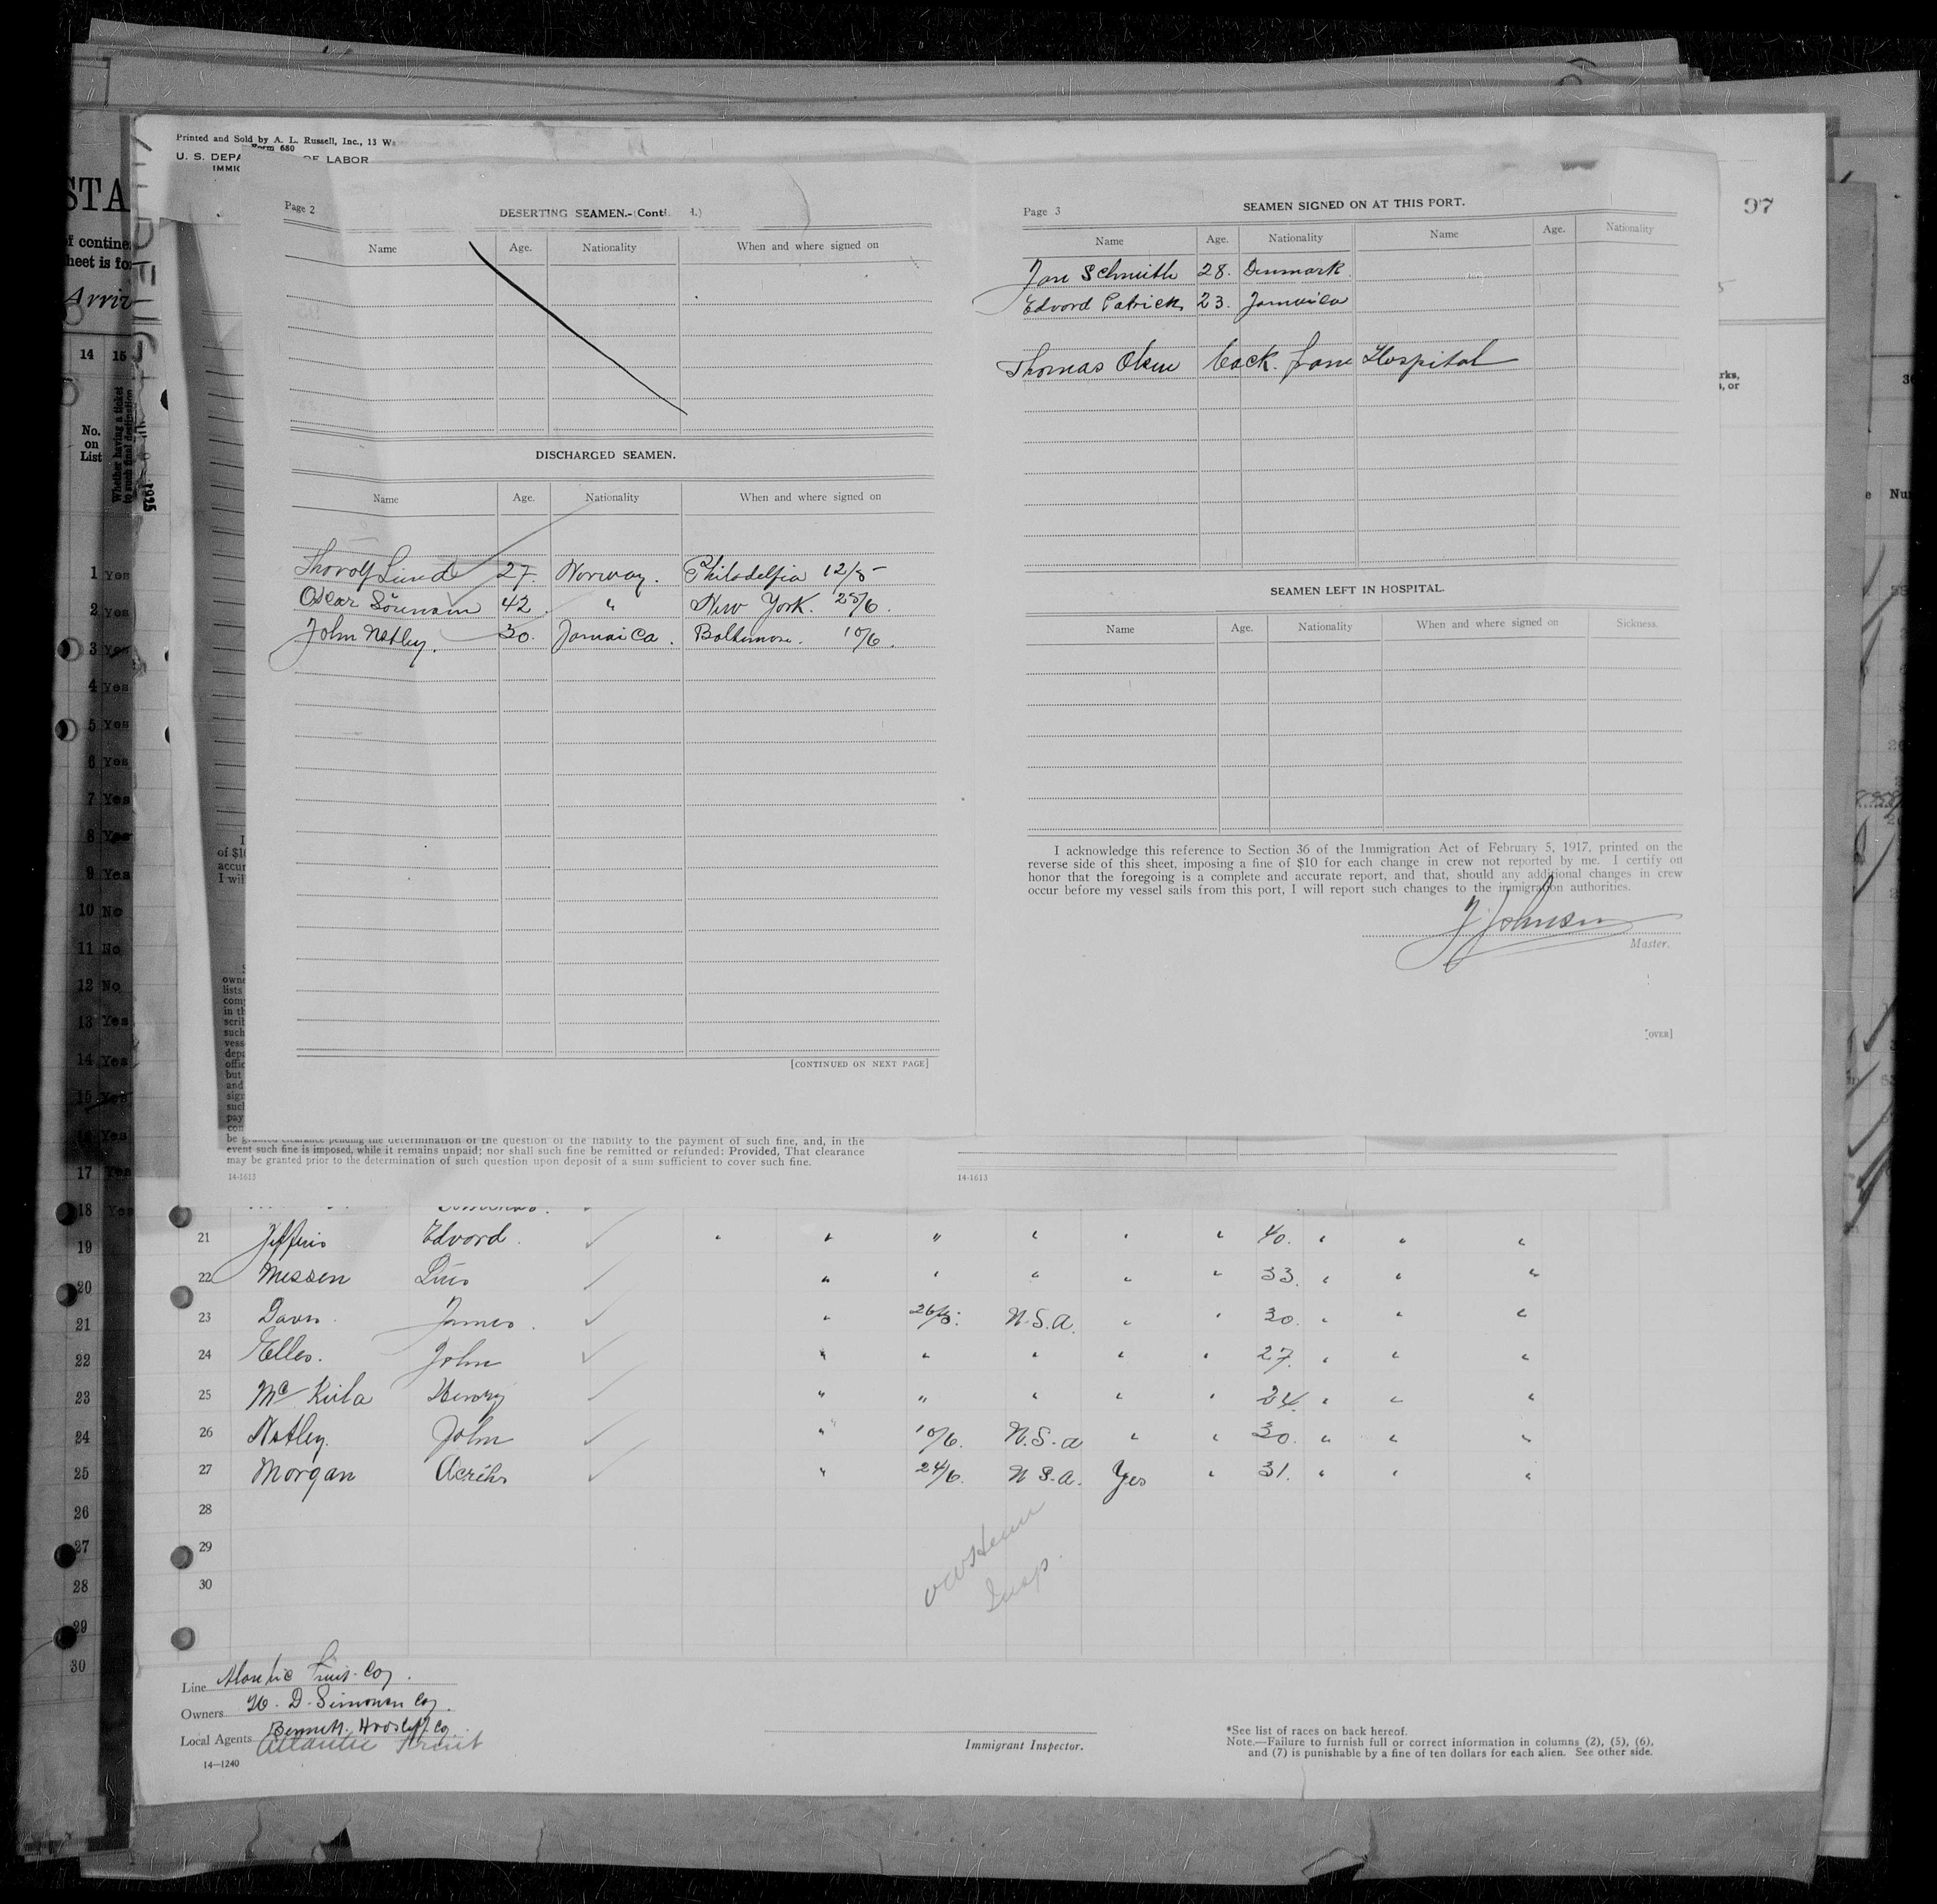 Printed and Sold by A. L. Russell, Inc., 13
Form 680
U. S. DEPA OF LABOR
IMMI
97
STA
of contine
heet is fo
Arriv
14 15
No. on List
Whether having a ticket to such final destination
1925
Page 2 DESERTING SEAMEN.-(Conti d.)
Name Age. Nationality When and where signed on
DISCHARGED SEAMEN.
Name Age. Nationality When and where signed on
Thorolf Lund 27. Norway. Philadelfia 12/5
Oscar 42. " New York. 25/6.
John Netley. 30. Jamaica. Baltimore. 10/6.
[CONTINUED ON NEXT PAGE]
Page 3 SEAMEN SIGNED ON AT THIS PORT.
Name Age. Nationality Name Age. Nationality
Jon Schmith 28. Denmark.
Edvord Patrick 23. Jamaica
Thomas Olsen back from Hospital
SEAMEN LEFT IN HOSPITAL.
Name Age. Nationality When and where signed on Sickness.
I acknowledge this reference to Section 36 of the Immigration Act of February 5, 1917, printed on the
reverse side of this sheet, imposing a fine of $10 for each change in crew not reported by me. I certify on
honor that the foregoing is a complete and accurate report, and that, should any additional changes in crew
occur before my vessel sails from this port, I will report such changes to the immigration authorities.
J Johnsen
Master.
[OVER]
1 Yes
2 Yes
3 Yes
4 Yes
5 Yes
6 Yes
7 Yes
8 Yes
9 Yes
10 No
11 No
12 No
13 Yes
14 Yes
15 Yes
Yes
17 Yes
18 Yes
19
20
21
22
23
24
25
26
27
28
29
30
be granted clearance pending the determination of the question of the liability to the payment of such fine, and, in the
event such fine is imposed, while it remains unpaid; nor shall such fine be remitted or refunded: Provided, That clearance
may be granted prior to the determination of such question upon deposit of a sum sufficient to cover such fine.
14-1613
14-1613
21 Edvord. " " " " " " 40. " " "
22 Messen " " " " " 33. " " "
23 James. " 26/5. N.S.A. " " 30. " " "
24 Elles. John " " " " " 27. " " "
25 Mc Henry " " " " " 24. " " "
26 Netley. John " 10/6. N.S.A " " 30. " " "
27 Morgan " 24/6. N.S.A. Yes " 31. " " "
28
29
30
Insp.
Line Atlantic Fruit Coy.
Owners D. Simonsen Coy.
Local Agents Bennett. Coy.
Atlantic Fruit
14—1240
Immigrant Inspector.
*See list of races on back hereof.
Note.—Failure to furnish full or correct information in columns (2), (5), (6),
and (7) is punishable by a fine of ten dollars for each alien. See other side.